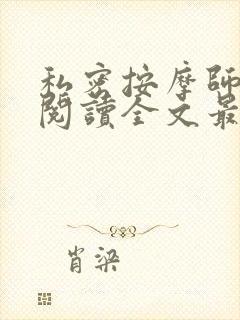 私密按摩師
閱讀全文最
肖梁